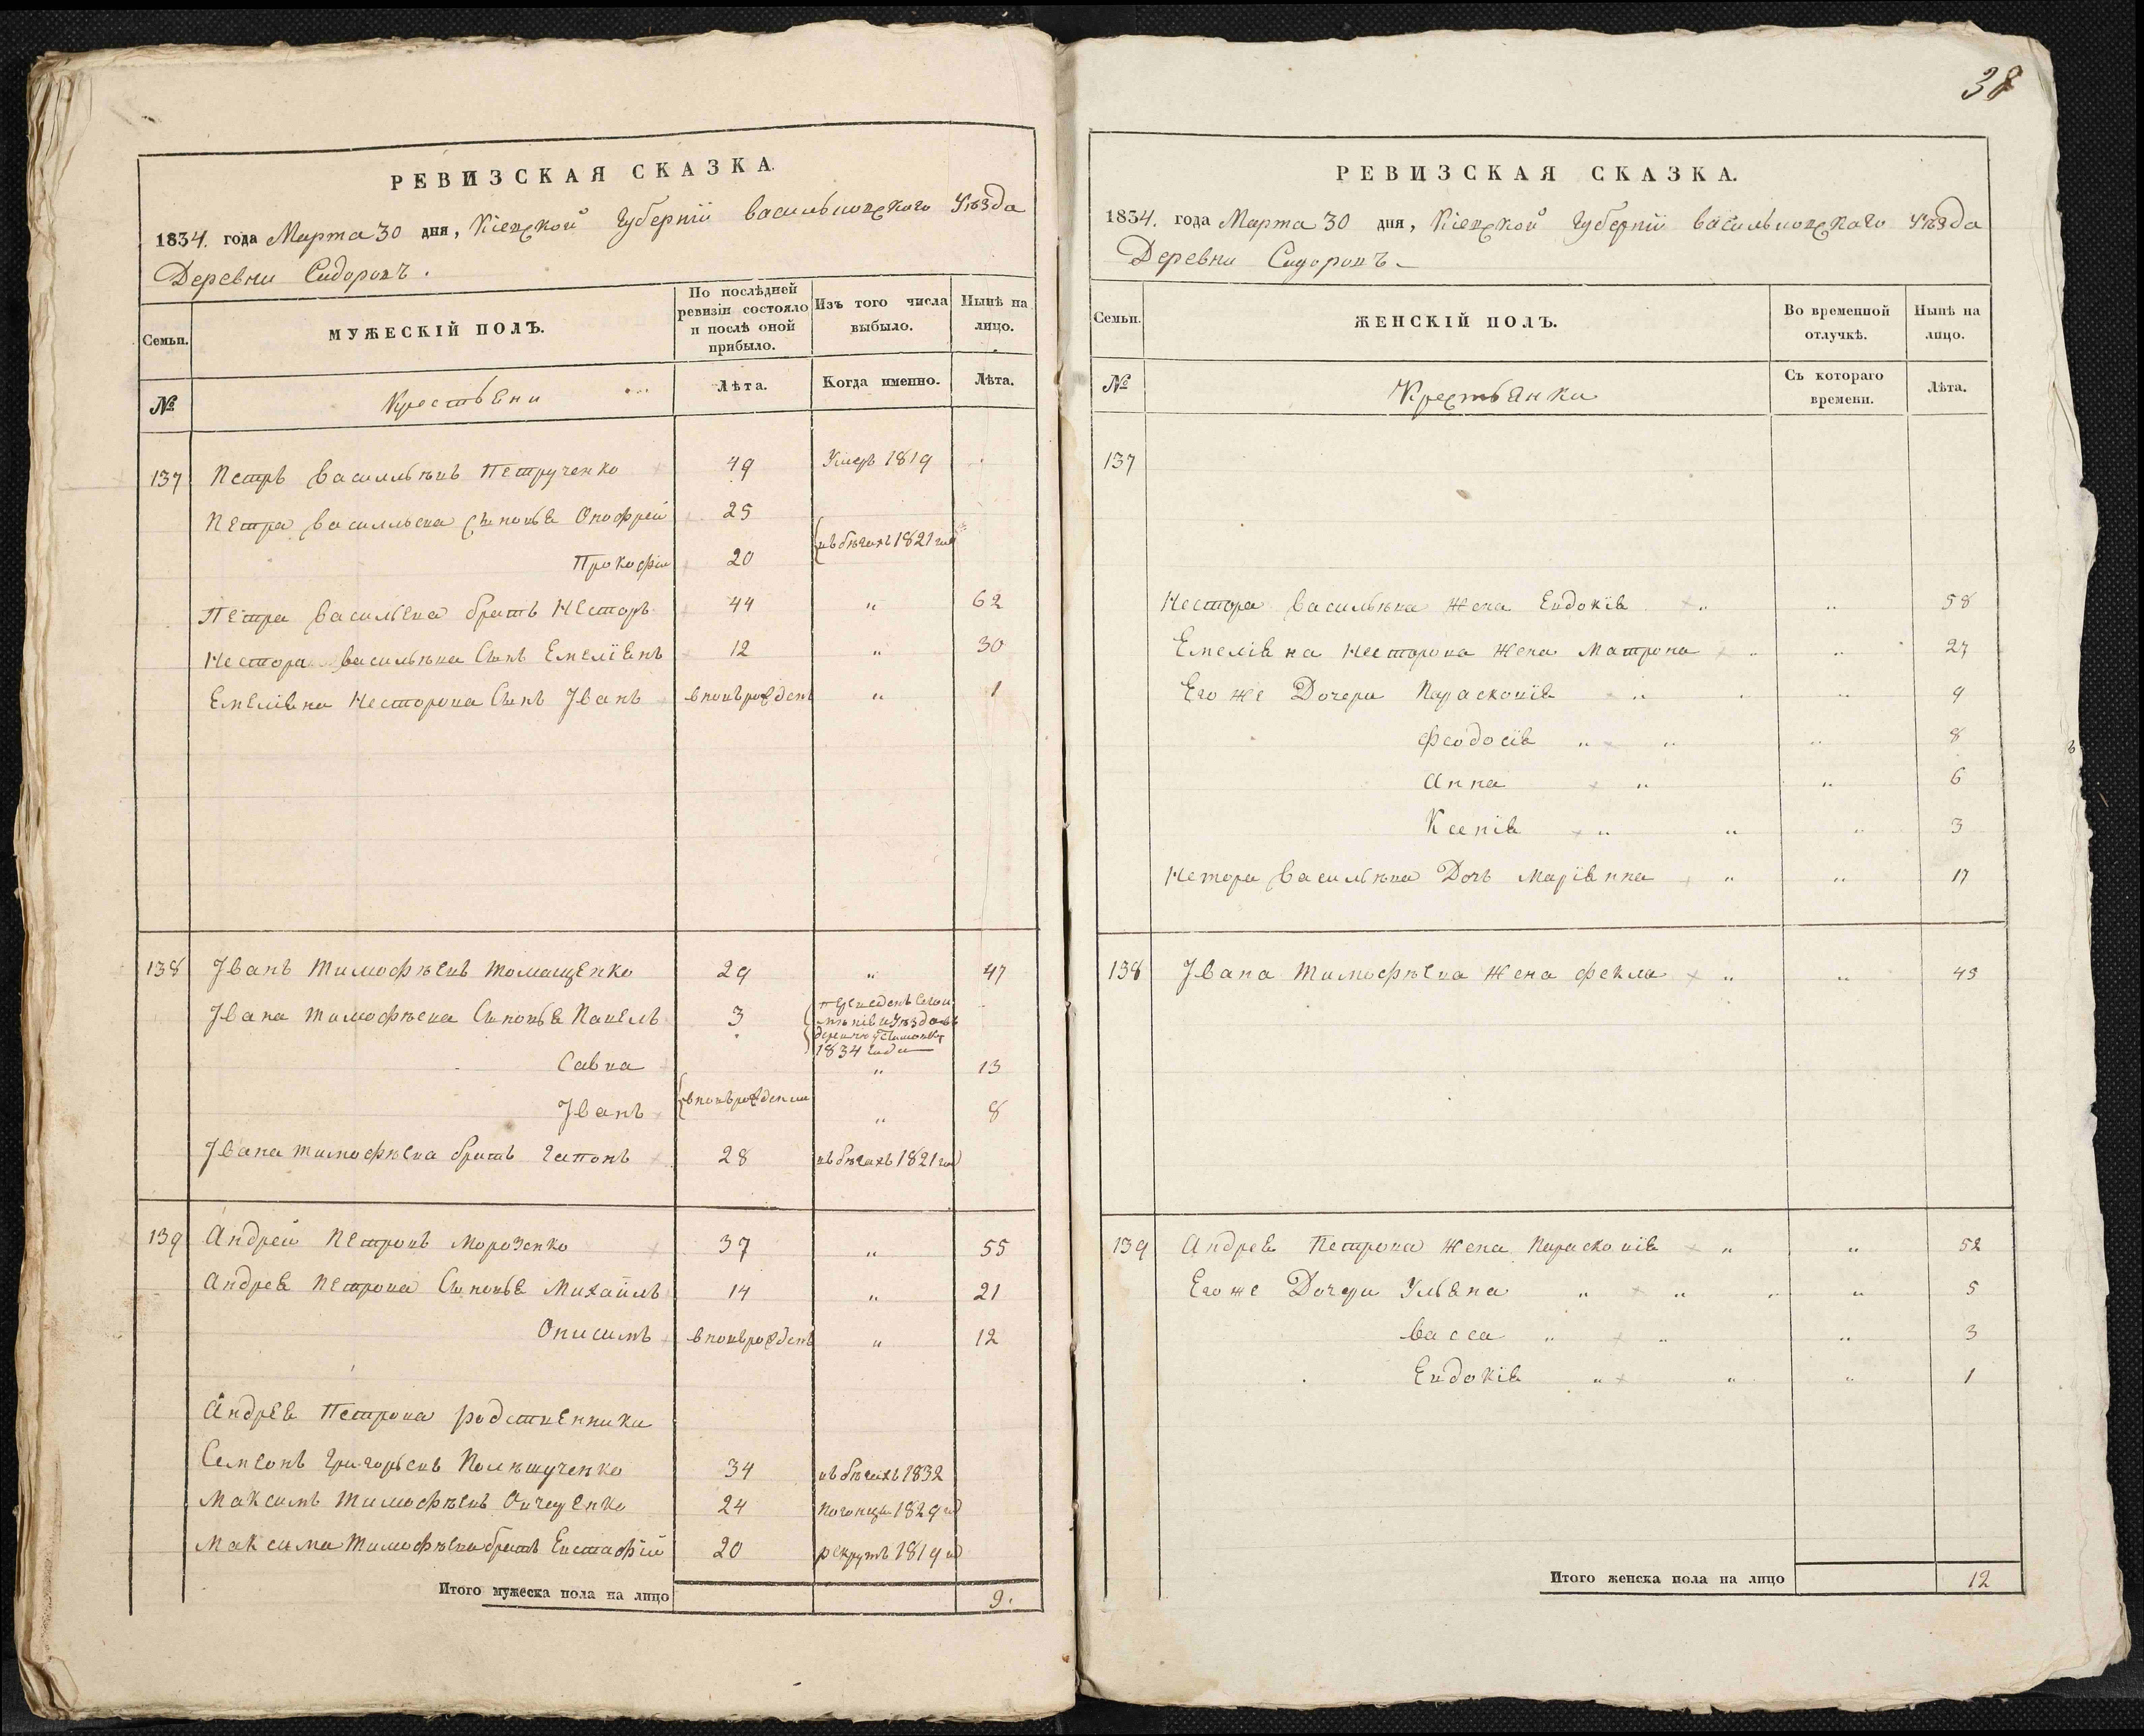 РЕВИЗСКАЯ СКАЗКА.
1834. года Марта 30 дня, Кіевской Губерніи Васильковского Уѣзда
Деревни Сидоровъ.
Семьи.
МУЖЕСКІЙ ПОЛЪ.
По послѣдней ревизіи состояло и послѣ оной прибыло.
Изъ того числа выбыло.
Нынѣ на лицо.
№
Крестьяни
Лѣта.
Когда именно.
Лѣта.
137 Петръ Васильѣвъ Петрученко 49 Умеръ 1819
Петра Васильева Сыновья Онофрей 25
въ бѣгахъ 1821 год
Прокофій 20
Петра Васильева братъ Несторъ 44 „ 62
Нестора Васильѣва Сынъ Емеліянъ 12 „ 30
Емеліяна Несторова Сынъ Іванъ вновърожденъ „ 1
138 Іванъ Тимофѣевъ Томащенко 29 „ 47
Івана Тимофѣева Сыновья Павелъ 3
1834 года
Савва „ 13
вновърожденни
Іванъ „ 8
Івана Тимофѣева братъ Гапонъ 28 въ бѣгахъ 1821 год
139 Андрей Петровъ Морозенко 37 „ 55
Андрея Петрова Сыновья Михайлъ 14 „ 21
Онисимъ вновърожденъ „ 12
Андрея Петрова родственники
Семіонъ Григорьевъ 34 въ бѣгахъ 1832
Максимъ Тимофѣевъ 24 1829 го
Максима Тимофѣева братъ Евстафій 20 рекрутъ 1819 го
Итого мужеска пола на лицо 9.
38
РЕВИЗСКАЯ СКАЗКА.
1834. года Марта 30 дня, Кіевской Губерніи Васильковскаго Уѣзда
Деревни Сидоровъ
Семьи.
ЖЕНСКІЙ ПОЛЪ.
Во временной отлучкѣ.
Нынѣ на лицо.
№
Крестьянки
Съ котораго времени.
Лѣта.
137
Нестора Васильѣва жена Евдокія „ „ 58
Емеліяна Несторова жена Матрона „ „ 27
Его же Дочери Парасковія „ „ 9
Феодосія „ „ „ 8
Анна „ „ 6
Ксенія „ „ „ 3
Нетора Васильѣва Дочь Маріянна „ „ 17
138 Івана Тимофѣева жена Фекла „ „ 45
139 Андрея Петрова жена Парасковія „ „ 52
Его же Дочери Ульяна „ „ „ „ 5
Васса „ „ „ 3
Евдокія „ „ „ 1
Итого женска пола на лицо 12